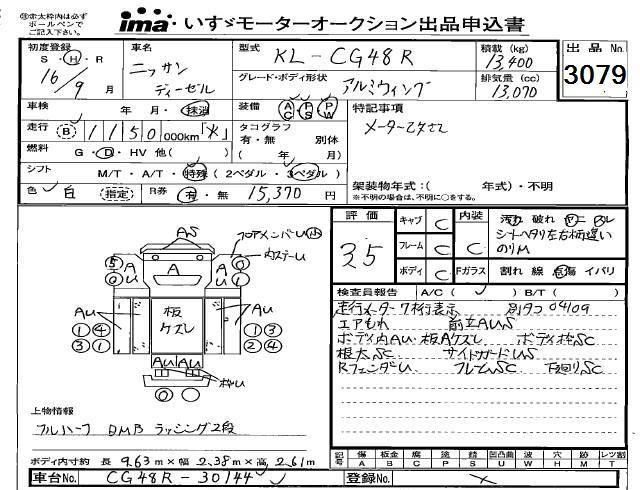 ㊟※太枠内は必ず
ボールペンで
ご記入下さい。
ima いすゞモーターオークション出品申込書
初度登録 S・H・R 16/9 月
車名 ニッサン ディーゼル
型式 KL-CG48R
グレード・ボディ形状 アルミウィング
積載 (kg) 13,400
排気量 (cc) 13,070
出品 No. 3079
車検 年・月・抹消
装備 AC PS PW
特記事項
メーター
走行 B 1150 000km「火」
タコグラフ 有・無 別体 ( 年/ 月)
燃料 G・D・HV 他( )
シフト M/T・A/T・特殊 (2ペダル・3ペダル)
色 白 指定 R券 有・無 15,370 円
架装物年式:( 年式)・不明
※不明の場合は、不明に○をする。
評価 3.5
キャブ C 内装 C
フレーム C
ボディ C Fガラス
汚れ 破れ コゲ
シートヘタリ左右柄違い
のりM
割れ 線 点傷 イバリ
検査員報告 A/C( ) B/T( )
走行メーター7桁表示 別タコ 04109
エアもれ 前立AUS
ボディ内AU・板Aケズレ ボディ枠SC
根太SC サイドガードUS
RフェンダーU フレームSC 下廻りSC
AS
フロアメンバーU
内ステーU
A U
A
A U
AU
板ケズレ
AU
① ④ ① ③
③ ① ② ④
AU AU
枠U
上物情報
フルハーフ DMB ラッシング2段
ボディ内寸約 長 9.63 m × 幅 2.38 m × 高 2.61 m
記号 傷 A 板金 B 腐 C 塗 P 錆 S 凹凸曲 U 波 W 穴 H 跡 M レンズ割 T
車台No. CG48R-30144
登録No.